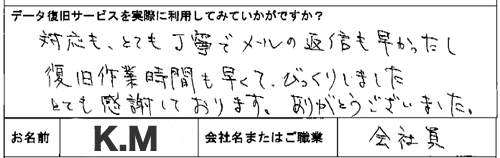 データ復旧サービスを実際に利用してみていかがですか？
対応も、とても丁寧でメールの返信も早かったし
復旧作業時間も早くて、びっくりしました
とても感謝しております。ありがとうございました。
お名前 K.M 会社名またはご職業 会社員